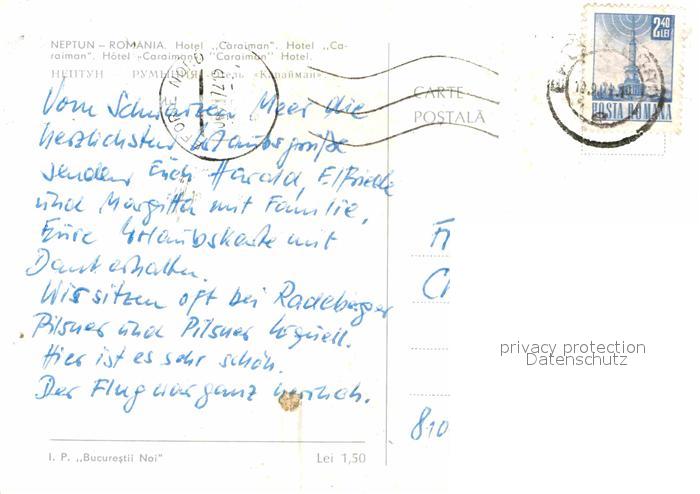 NEPTUN – ROMANIA. Hotel „Caraiman". Hotel „Ca-
raiman". Hôtel „Caraiman". "Caraiman" Hotel.
НЕПТУН РУМЫНИЯ Отель «Карайман»
CARTE
POȘTALĂ
2,40
LEI
POSTA ROMANA
Vom Schwarzen Meer die
herzlichsten Urlaubsgrüße
senden Euch Harald, Elfriede
und Margitta mit Familie,
Eure Urlaubskarte mit
Dank erhalten.
Wir sitzen oft bei Radeberger
Pilsner und Pilsner Urquell.
Hier ist es sehr schön.
Der Flug war ganz herrlich.
810
privacy protection
Datenschutz
I. P. „Bucureștii Noi" Lei 1,50